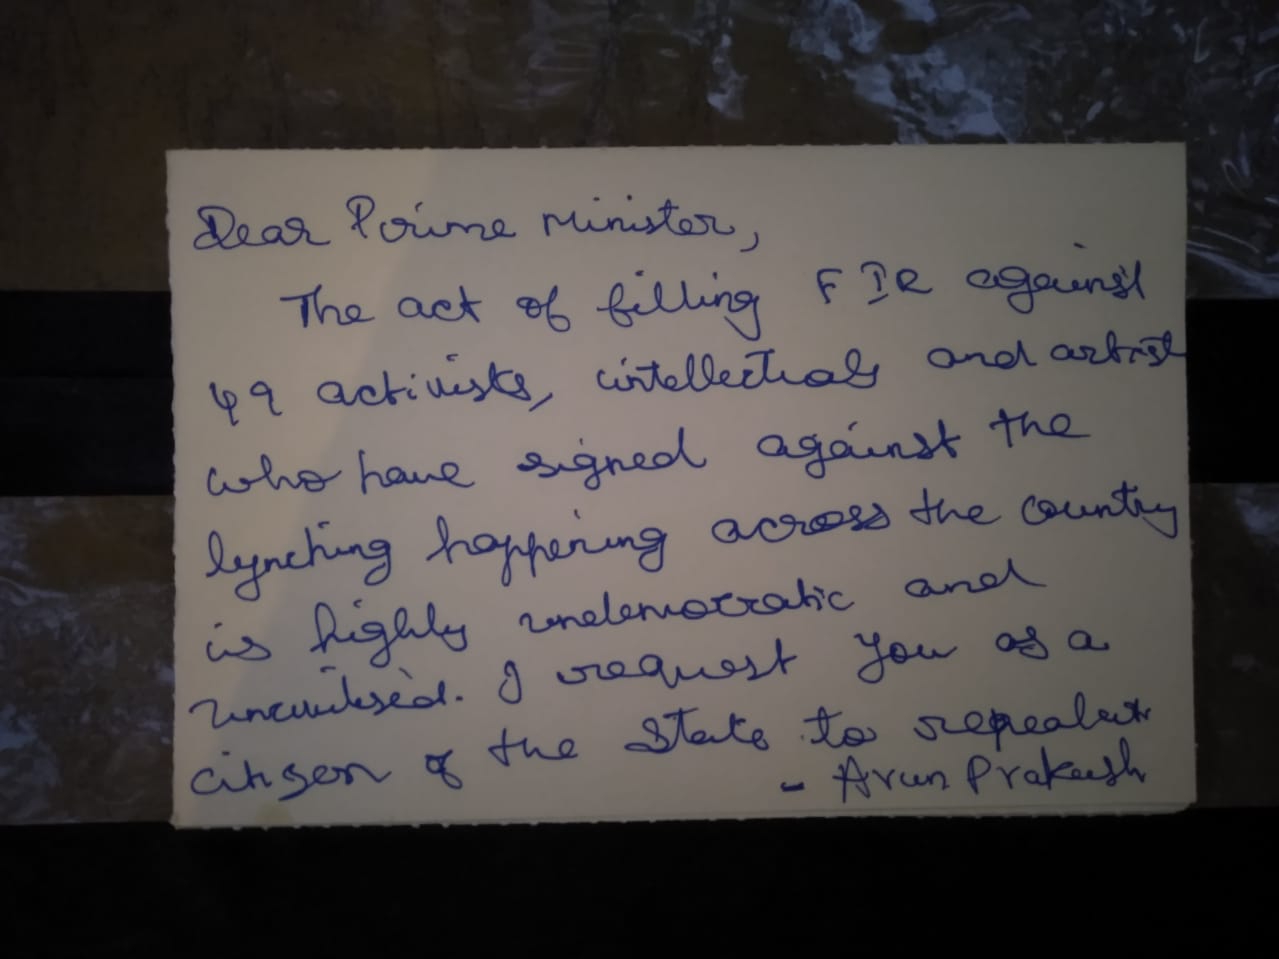 Dear Prime Minister,
The act of filling FIR against
49 activists, intellectuals and artist
who have signed against the
lynching happening across the country
is highly undemocratic and
uncivilised. I request you as a
citizen of the state to repeal it.
- Arun Prakash